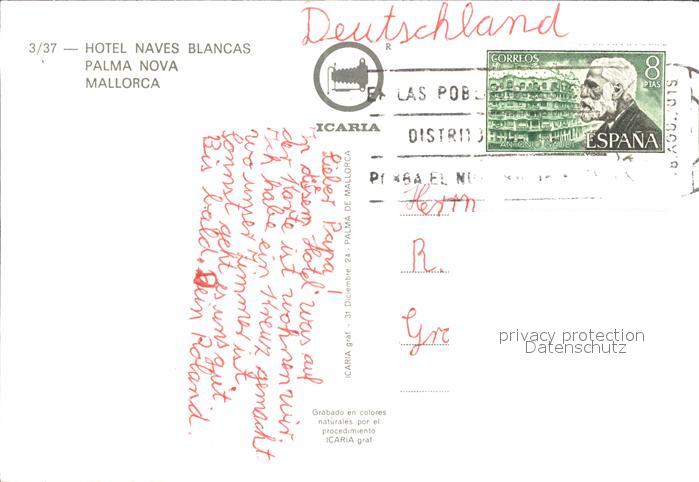 Deutschland
3/37 — HOTEL NAVES BLANCAS
PALMA NOVA
MALLORCA
R
ICARIA
CORREOS
8
PTAS
ANTONIO GAUDI
ESPAÑA
LAS POBL
DISTRITO
EL
Lieber Papa!
In diesem Hotel was auf
der Karte ist wohnen wir.
Ich habe ein Kreuz gemacht
wo unser Zimmer ist.
Sonst geht es uns gut.
Bis bald. Dein Roland.
ICARIA graf - 31 Diciembre, 24 - PALMA DE MALLORCA
Herrn
R.
Gro
privacy protection
Datenschutz
Grabado en colores
naturales por el
procedimiento
ICARIA graf